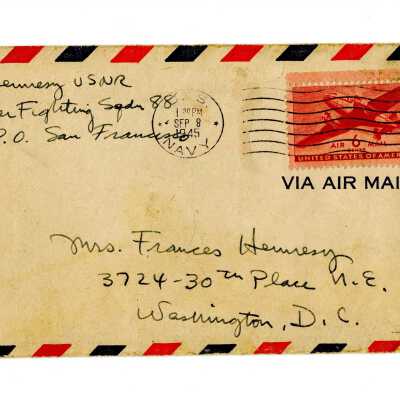 Hennesy USNR
er Fighting Sqdn 88
P.O. San Francisco
U.S.
1 30 PM
SEP 8
1945
NAVY
AIR 6 MAIL
CENTS
UNITED STATES OF AMER
VIA AIR MAI
Mrs. Frances Hennesy
3724-30th Place N.E.
Washington, D.C.